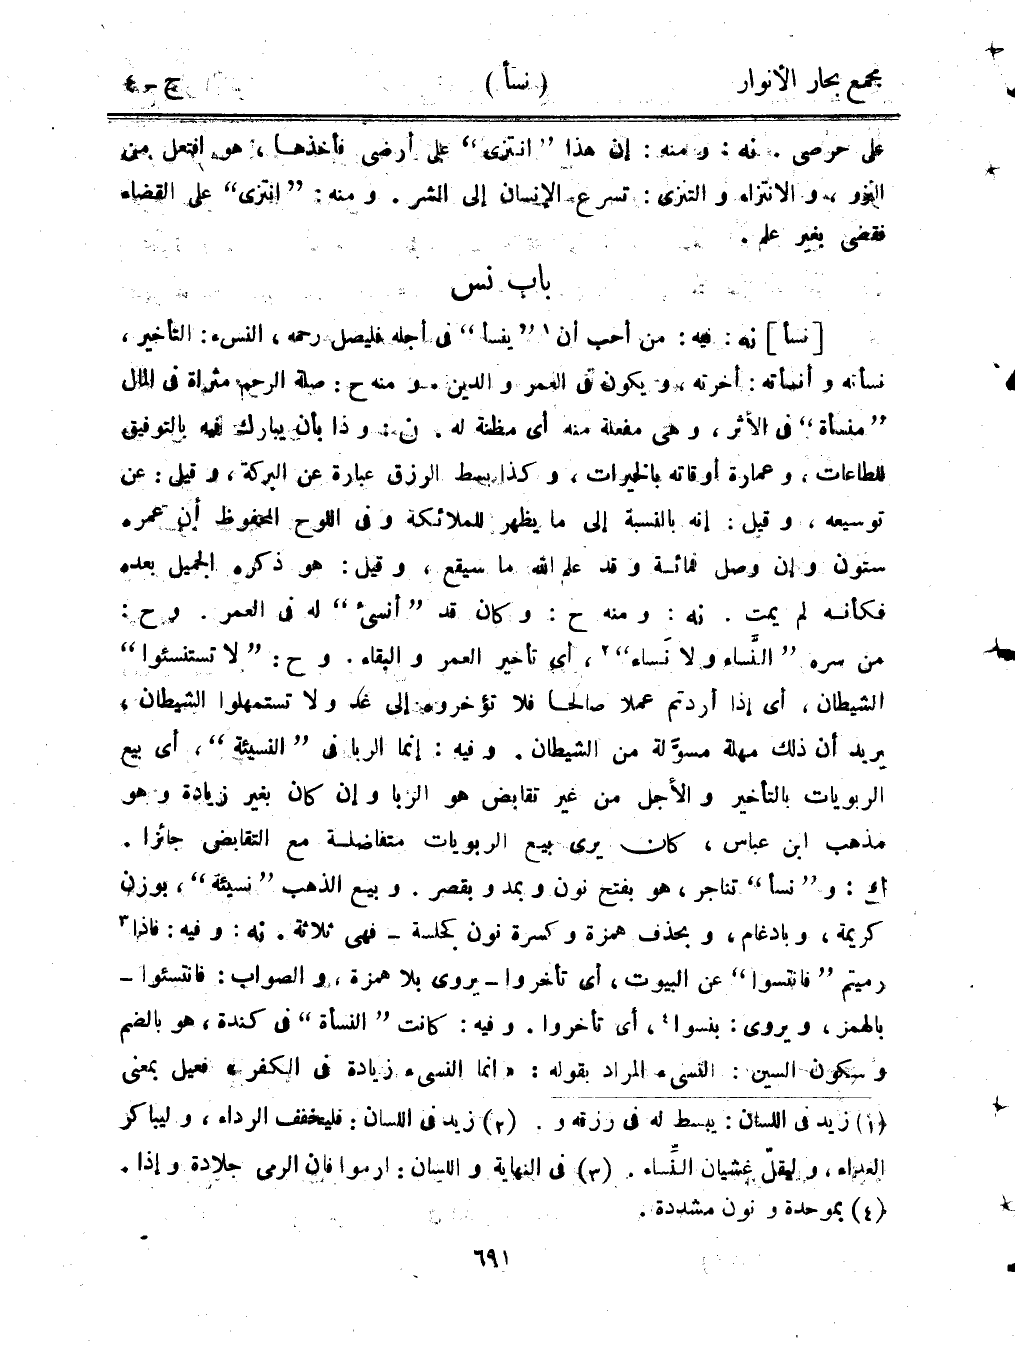 مجمع بحار الأنوار
( نسأ )
ج - ٤
على حرصى . نه : و منه : إن هذا ”انتزى“ على أرضى فأخذها ، هو افتعل من
النزو ، و الانتزاء و التنزى : تسرع الإنسان إلى الشر . و منه : ”انتزى“ على القضاء
فقضى بغير علم .
باب نس
[ نسأ ] نه : فيه : من أحب أن١ ”ينسأ“ فى أجله فليصل رحمه ، النسء : التأخير ،
نسأته و أنسأته : أخرته ، و يكون فى العمر و الدين . و منه ح : صلة الرحم مثراة فى المال
”منسأة“ فى الأثر ، و هى مفعلة منه أى مظنة له . ن : و ذا بأن يبارك فيه بالتوفيق
للطاعات ، و عمارة أوقاته بالخيرات ، و كذا بسط الرزق عبارة عن البركة ، و قيل : عن
توسيعه ، و قيل : إنه بالنسبة إلى ما يظهر للملائكة و فى اللوح المحفوظ أن عمره
ستون و إن وصل فمائة و قد علم الله ما سيقع ، و قيل : هو ذكره الجميل بعده
فكأنه لم يمت . نه : و منه ح : و كان قد ”أنسئ“ له فى العمر . و ح :
من سره ”النَّساء و لا نَساء“٢ ، أى تأخير العمر و البقاء . و ح : ”لا تستنسئوا“
الشيطان ، أى إذا أردتم عملا صالحا فلا تؤخروه إلى غد و لا تستمهلوا الشيطان ،
يريد أن ذلك مهلة مسوّلة من الشيطان . و فيه : إنما الربا فى ”النسيئة“ ، أى بيع
الربويات بالتأخير و الأجل من غير تقابض هو الربا و إن كان بغير زيادة و هو
مذهب ابن عباس ، كان يرى بيع الربويات متفاضلة مع التقابض جائزا .
ك : و ”نسأ“ تناجر ، هو بفتح نون و بمد و بقصر . و بيع الذهب ”نسيئة“ ، بوزن
كريمة ، و بادغام ، و بحذف همزة و كسرة نون كجلسة - فهى ثلاثة . نه : و فيه : فاذا٣
رميتم ”فانتسوا“ عن البيوت ، أى تأخروا - يروى بلا همزة ، و الصواب : فانتسئوا -
بالهمز ، و يروى : بنسوا٤ ، أى تأخروا . و فيه : كانت ”النسأة“ فى كندة ، هو بالضم
و سكون السين : النسىء المراد بقوله : « انما النسىء زيادة فى الكفر » فعيل بمعنى
(١) زيد فى اللسان : يبسط له فى رزقه و . (٢) زيد فى اللسان : فليخفف الرداء ، و ليباكر
الغداء ، و ليقلّ غشيان النِّساء . (٣) فى النهاية و اللسان : ارموا فان الرمى جلادة و إذا .
(٤) بموحدة و نون مشددة .
٦٩١